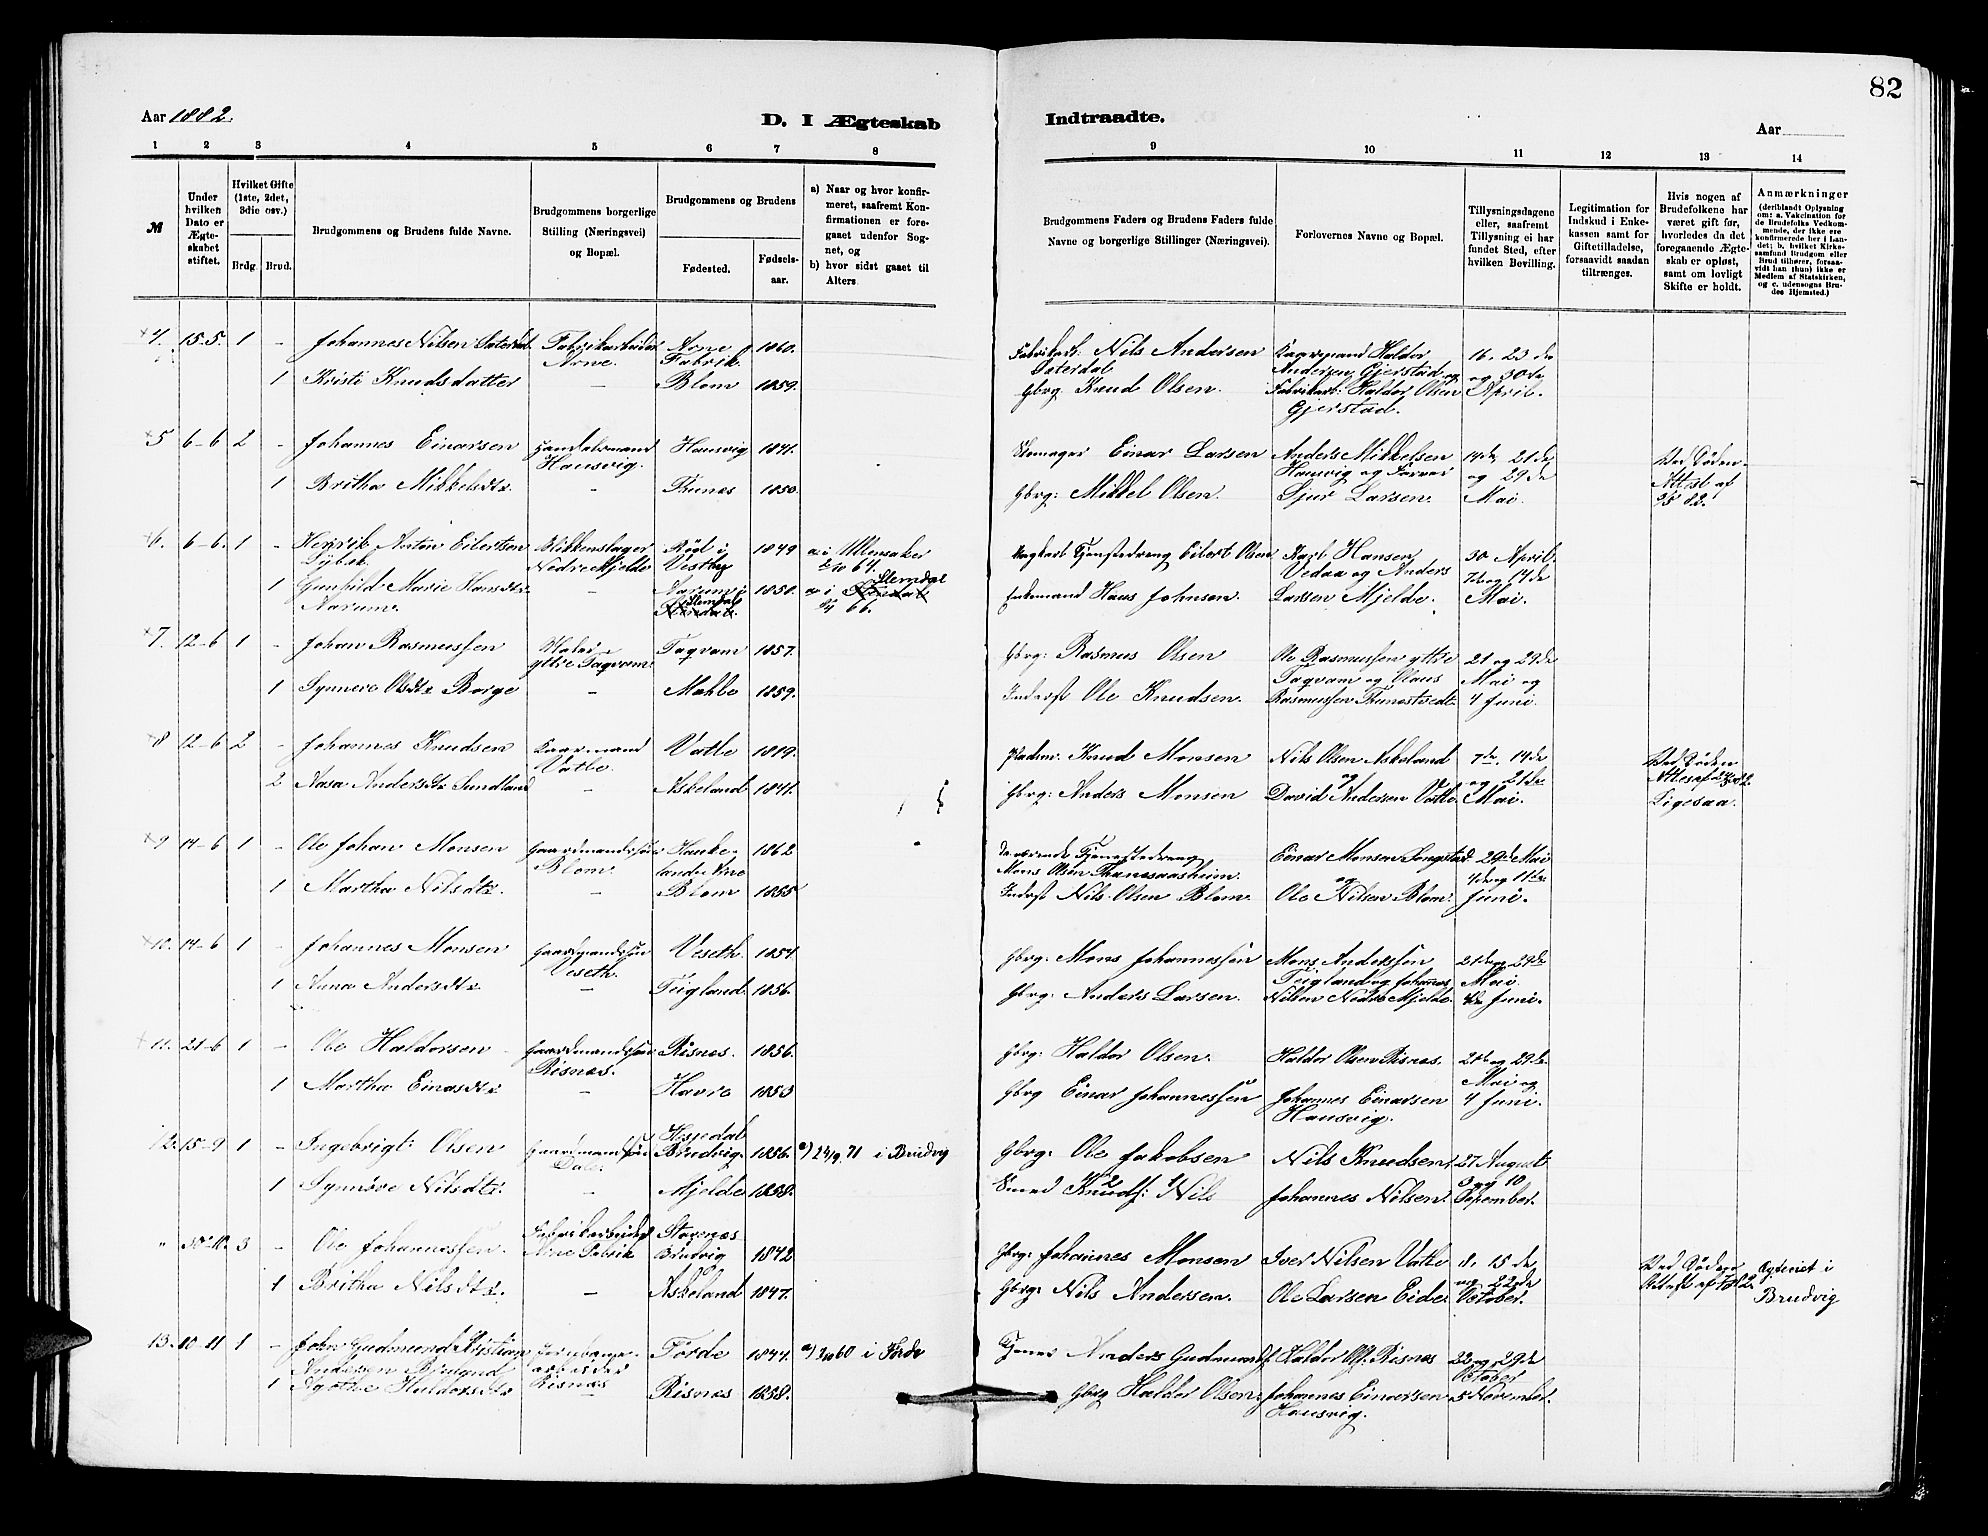 82
Aar 1882.
D. I Ægteskab
Indtraadte.
Aar
1 2 3 4 5 6 7 8
9 10 11 12 13 14
№
Under hvilken Dato er Ægteskabet stiftet.
Hvilket Gifte (1ste, 2det, 3die osv.)
Brdg. Brud.
Brudgommens og Brudens fulde Navne.
Brudgommens borgerlige Stilling (Næringsvei) og Bopæl.
Brudgommens og Brudens
Fødested.
Fødselsaar.
a) Naar og hvor konfirmeret, saafremt Konfirmationen er foregaaet udenfor Sognet, og
b) hvor sidst gaaet til Alters.
Brudgommens Faders og Brudens Faders fulde Navne og borgerlige Stillinger (Næringsvei).
Forlovernes Navne og Bopæl.
Tillysningsdagene eller, saafremt Tillysning ei har fundet Sted, efter hvilken Bevilling.
Legitimation for Indskud i Enkekassen samt for Giftetilladelse, forsaavidt saadan tiltrænges.
Hvis nogen af Brudefolkene har været gift før, hvorledes da det foregaaende Ægteskab er opløst, samt om lovligt Skifte er holdt.
Anmærkninger (deriblandt Oplysning om: a. Vakcination for de Brudefolks Vedkommende, der ikke ere konfirmerede her i Landet; b. hvilket Kirkesamfund Brudgom eller Brud tilhører, forsaavidt han (hun) ikke er Medlem af Statskirken, og c. udensogns Brudes Hjemsted.)
4. 15-5. 1 - Johannes Nilsen Sæterdal Fabrikarbeider Arne. Arne Fabrik. 1860.
Fabrikarb: Nils Andersen Sæterdal Kaarmand Haldor Andersen Gjerstad og 16, 23 de og 30 de
1 Kristi Knudsdatter - Blom 1859.
Gbrg Knud Olsen. Fabrikarb: Haldor Olsen Gjerstad. April.
5 6-6 2 - Johannes Einarsen Handelsmand Hausvig. Hausvig 1841.
Skomager Einar Larsen Anders Mikkelsen Hausvig og Farver 14de, 21 de og 29 de Ved Døden.
1 Britha Mikkelsdtr. - Thunæs 1850.
Gbrg: Mikkel Olsen. Sjur Larsen. Mai Attest af 3/5 82.
6. 6-6. 1 - Henrik Anton Eibertsen Blikkenslager Nedre Mjelde Rød i Vestby 1849 a. i Ullensaker 64.
Tjenestedreng Eibert Olsen Karl Hansen Vedaa og Anders 30 April,
1 Gunhild Marie Hansdtr. Aarum. - Aarum i Slemdal 1850. a. i Slemdal 66.
Enkemand Hans Johnsen. Larsen Mjelde. 7de og 14 de Mai.
7. 12-6 1 - Johan Rasmussen Maler ytre Taqvam. Taqvam 1857.
Gbrg: Rasmus Olsen Ole Rasmussen ytre Taqvam og Olaus 21 og 29 de Mai og
1 Synneve Olsdtr Borge - Mahle 1859.
Inderst Ole Knudsen. Rasmussen Thunestvedt. 4 Juni.
8 12-6 2 - Johannes Knudsen Kaarmand Vatle. Vatle 1819.
Pladsm. Knud Monsen Nils Olsen Askeland og 7de, 14 de og 21 de Ved Døden
2 Aasa Andersdtr Sundland - Askeland 1841.
Gbrg: Anders Monsen David Andersen Vatle. Mai. Ligesaa.
9 14-6 1 - Ole Johan Monsen Gaardmandssøn Blom. Haukelandv. Arne 1862
Tjenestedreng Mons Olsen Thunesaasheim. Einar Monsen Songstad og 29 de Mai
1 Martha Nilsdtr. - Blom 1855
Inderst Nils Olsen Blom. Ole Nilsen Blom. 4de og 11te Juni.
10. 14-6 1 - Johannes Monsen Gaardmandssøn Veseth. Veseth. 1854
Gbrg: Mons Johannessen Mons Anderssen Tugland og Johannes 21de og 29de Mai
1 Anna Andersdtr. - Tugland. 1856.
Gbrg: Anders Larsen. Nilsen Nedre Mjelde. 4de Juni.
11. 21-6 1 - Ole Haldorsen Gaardmandssøn Risnes. Risnes. 1856.
Gbrg: Haldor Olsen. Haldor Olsen Risnes. 21de og 29de Mai og
1 Martha Einarsdtr - Havre 1853
Gbrg Einar Johannessen Johannes Einarsen Hausvig. 4 Juni.
12. 15-9 1 - Ingebrigt Olsen Gaardmandssøn Dale. Hesjedal Brudvig. 1856. a) 24/9. 71 i Brudvig
Gbrg: Ole Jakobsen Nils Knudsen 27 August
1 Synnöve Nilsdtr. - Mjelde 1858.
Smed Knuds: Nils Johannes Nilsen. 3 og 10 September.
" 30-10. 3 - Ole Johannessen. Fabrikarbeider Arne Fabrik Stavenæs Brudvig 1842
Gbrg: Johannes Monsen Iver Nilsen Vatle 8, 15 de Ved Døden Egteviet i Brudvig
1 Britha Nilsdtr. - Askeland 1847.
Gbrg: Nils Andersen. Ole Larsen Eide og 22 de October.
13. 10-11 1 - John Gudmund Kristian Andersen Bjelland Jernbanearbeider Risnæs Førde 1844. a) 3/10 60 i Førde
Tjener Anders Gudmunds: Haldor Ols: Risnæs 22 og 29 de October
1 Agathe Haldorsdtr Risnæs 1858.
Gbrg Haldor Olsen. Johannes Einarsen Hausvig. 5 November.